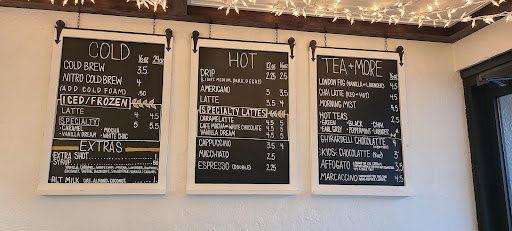 COLD
16oz 24oz
COLD BREW 3.5
NITRO COLD BREW 4
(ADD COLD FOAM) .50
ICED/FROZEN
LATTE 4 5
SPECIALTY 5 5.5
- CARAMEL - MOCHA
- VANILLA DREAM - WHITE CHOC
EXTRAS
EXTRA SHOT
SYRUP .50
ALT MILK (OAT, ALMOND, COCONUT) 1
HOT
12oz 16oz
DRIP 2.25 2.5
(LIGHT, MEDIUM, DARK, DECAF)
AMERICANO 3 3.5
LATTE 3.5 4
SPECIALTY LATTES
CARAMELATTE 4.5 5
CAFE MOCHA + WHITE CHOCOLATE 4.5 5
VANILLA DREAM 4.5 5
CAPPUCCINO 3.5 4
MACCHIATO 2.5
ESPRESSO (DOUBLE) 2.25
TEA + MORE
LONDON FOG (VANILLA + LAVENDER) 4.5
CHAI LATTE (ICED + HOT) 4.5
MORNING MIST 4.5
HOT TEAS
- GREEN - BLACK - CHAI
- EARL GREY - PEPPERMINT
GHIRARDELLI CHOCOLATTE 4
KIDS CHOCOLATTE 3
AFFOGATO
MARCACCINO 4.5